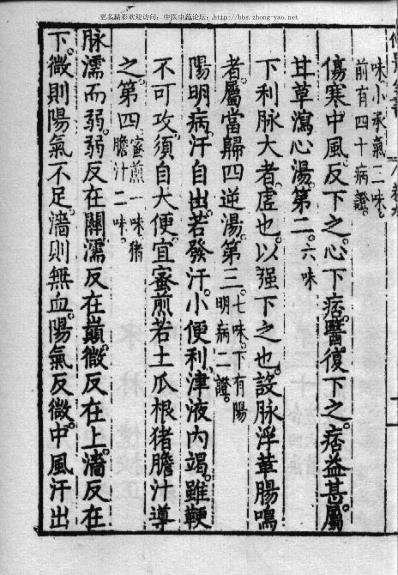 更多精彩欢迎访问：中医中药论坛：http://bbs.zhong-yao.net
味小承氣二味
前有四十病證
傷寒中風反下之心下痞醫復下之痞益甚屬
甘草瀉心湯第二六味
下利脉大者虛也以强下之也設脉浮革腸鳴
者屬當歸四逆湯第三七味下有陽明病二證
陽明病汗自出若發汗小便利津液内竭雖鞕
不可攻須自大便宜蜜煎若土瓜根猪膽汁導
之第四蜜煎一味猪膽汁二味
脉濡而弱弱反在關濡反在巔微反在上濇反在
下微則陽氣不足濇則無血陽氣反微中風汗出